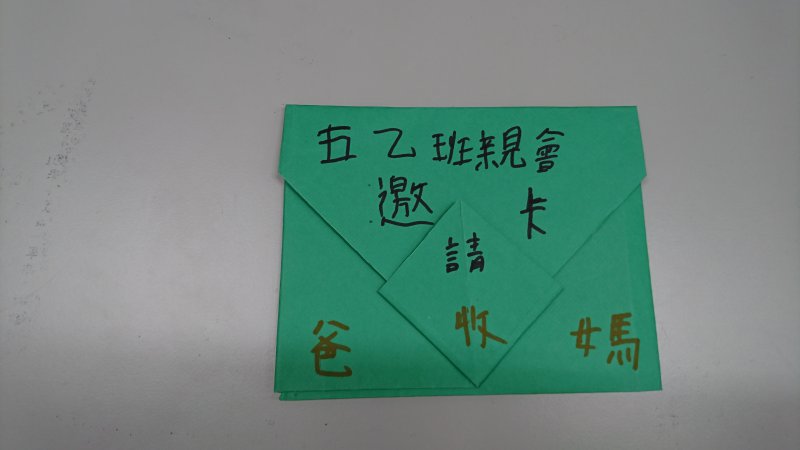 五乙班親會
邀請卡
爸收媽